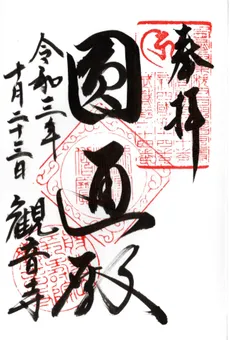 奉拝
圓通殿
令和三年
十月二十三日
観音寺